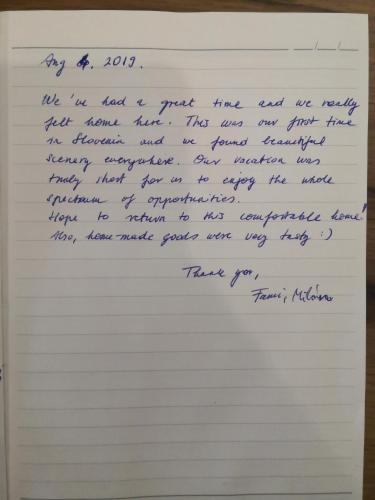 Aug 4. 2019.
We've had a great time and we really
felt home here. This was our first time
in Slovenia and we found beautiful
scenery everywhere. Our vacation was
truly short for us to enjoy the whole
spectrum of opportunities.
Hope to return to this comfortable home!
Also, home-made goods were very tasty :)
Thank you,